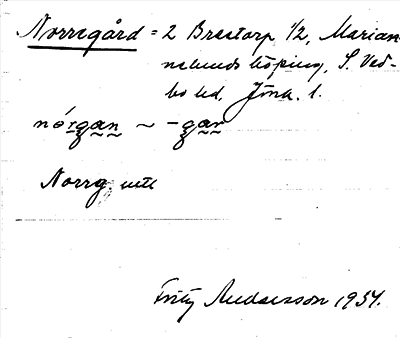 Norregård = 2 Brestorp 1/2, Marian-
nelunds köping, S. Ved-
bo hd, Jönk. l.
nó́rgan ~ -gan
Norrg. utt
Fritz Andersson 1934.